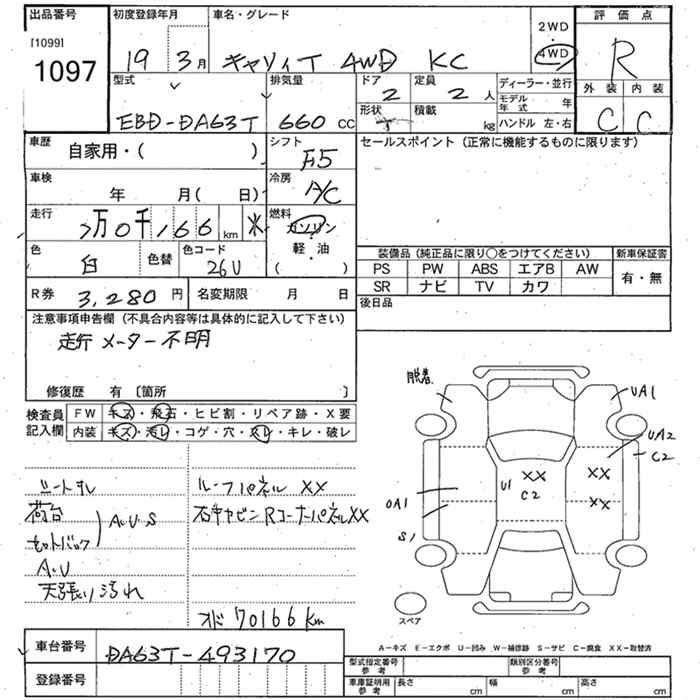 出品番号
[1099]
1097
初度登録年月
19 3月
車名・グレード
キャリィT 4WD KC
2WD
・
4WD
評価点
R
外装 内装
C C
型式
EBD-DA63T
排気量
660 cc
ドア
2
定員
2 人
形状
積載
kg
ディーラー・並行
モデル年式 年
ハンドル 左・右
車歴
自家用・( )
シフト
F5
セールスポイント(正常に機能するものに限ります)
車検
年 月( 日)
冷房
A/C
走行
7万0千166 km ※
燃料
ガソリン
・
軽油
・
( )
色
白
色替
色コード
26U
装備品(純正品に限り○をつけてください)
新車保証書
PS PW ABS エアB AW
SR ナビ TV カワ
有・無
R券 3,280 円
名変期限 月 日
後日品
注意事項申告欄(不具合内容等は具体的に記入して下さい)
走行メーター不明
修復歴 有〔箇所 〕
検査員記入欄
FW キズ・飛石・ヒビ割・リペア跡・X要
内装 キズ・汚レ・コゲ・穴・スレ・キレ・破レ
シートスレ
荷台
セットバック
A・U・S
A・U
天張り汚れ
ルーフパネル XX
右キャビンRコーナーパネルXX
オド 70166 km
脱着
UA1
UA2
C2
XX
U1
C2
XX
XX
UA1
S1
スペア
A-キズ E-エクボ U-凹み W-補修跡 S-サビ C-腐食 XX-取替済
車台番号
DA63T-493170
登録番号
型式指定番号 参考
類別区分番号 参考
車庫証明用 参考
長さ cm
幅 cm
高さ cm